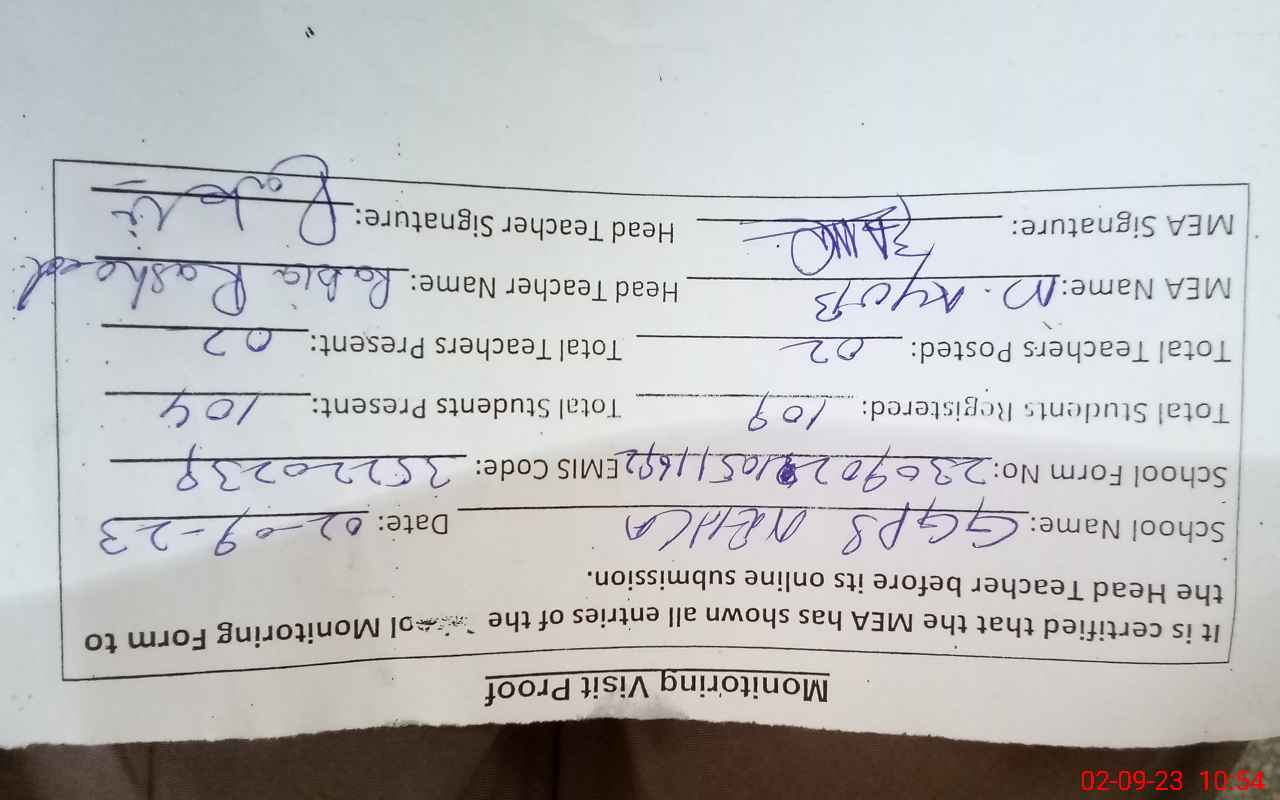 Monitoring Visit Proof
It is certified that the MEA has shown all entries of the Monitoring Form to
the Head Teacher before its online submission.
School Name: GGPS NEHKA Date: 02-09-23
School Form No: EMIS Code: 35220239
Total Students Registered: 109 Total Students Present: 104
Total Teachers Posted: 02 Total Teachers Present: 02
MEA Name: M. Ayub Head Teacher Name: Rabia Rasheed
MEA Signature: Head Teacher Signature:
02-09-23 10:54